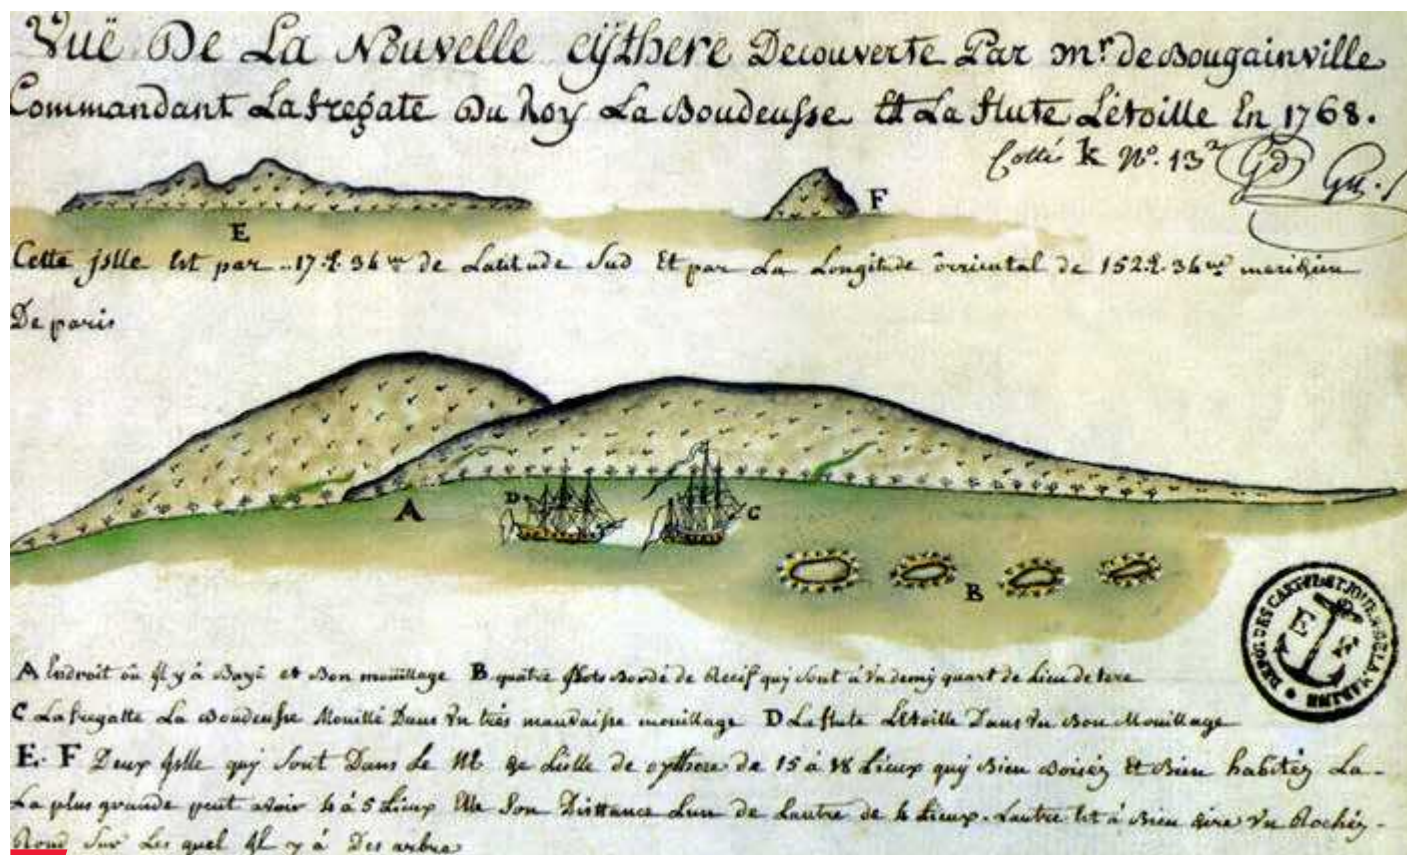 Vuë De La Nouvelle cÿthere Decouverte Par mr. de Bougainville
Commandant La fregate Du Roy La Boudeusse Et La flute L'étoille En 1768.
Cotté k No. 13
E F
Cette jslle Est par 17. 34 m de Latitude Sud Et par La Longitude orriental de 152. 34 m meridien
De paris
D C
A
B
DEPOT DES CARTES ET JOUR. DE LA MARINE
A Endroit où jl y à Baye et Bon mouillage B quatre jlots Bordé de Recif quy sont à Vn demy quart de Lieu de tere
C La fregatte La Boudeusse Mouillé Dans Vn trés mauvaisse mouillage D La flute L'Etoille Dans Vn Bon Mouillage
E. F Deux jslle quy sont Dans Le de Lislle de cythere de 15 à 18 Lieux quy Bien Boisés Et Bien habités La
La plus grande peut avoir 4 à 5 Lieux Elle Son Disttance Lun de Lautre de 4 Lieux. Lautre Est à Bien dire Vn Rochés
Rond Sur Les quel jl y à Des arbre